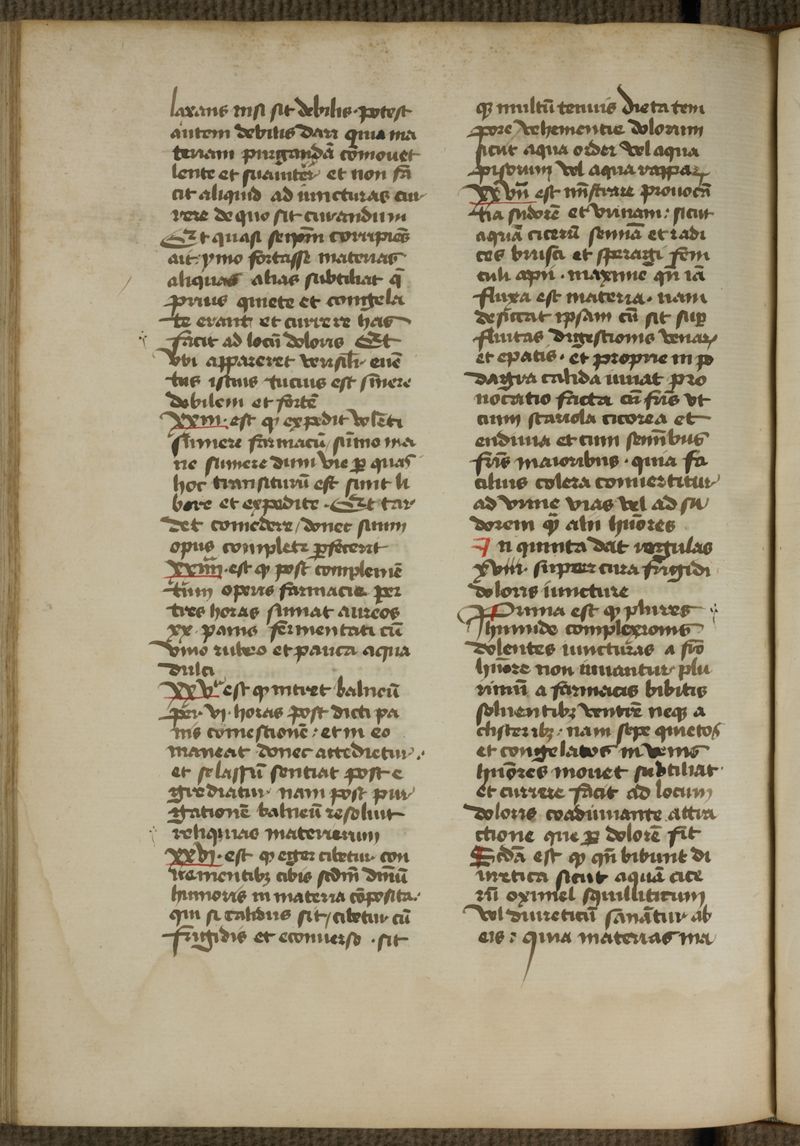 laxans nisi sit debilis · potest
autem debilis dari quia ma
teriam purgandā comouet
lente et suauiter et non fa
cit aliquid ad iuncturas cur
rere de quo sit curandum
Et quasi corripiēs
ait ymo fortasse materias
aliquas alias subtiliat q̄
prius quiete et congela
te erant et currere has
facit ad locū doloris Et
vbi appareret euē
tus istius tucius est sūmere
debilem et fortē
XXIII · est qꝫ expedit volēti
sumere farmacū / sūmo ma
ne sumere dum vie ꝑ quas
hoc transiturū est sunt li
bere et expedite · Et tar
det comedere / donec suum
opus complete ꝑfecerit
XXIIII · est qꝫ post complemē
tum operis farmacia per
tres horas sumat aureos
xx · panis fermentati cū
vino rubeo et pauca aqua
dulci
XXV · est qꝫ intret balneū
per · VI · horas post dicti pa
nis comestionē : et in eo
maneat donec attedietur ·
et se lassū sentiat post e
grediatur nam post pur
gationē balneū resoluit
reliquias materierum
XXVI · est qꝫ eger cibetur con
uenientibꝫ cibis scdm̄ domiū
humoris in materia cōposita ·
qui si calidus sit / cibetur cū
frigidis et econuerso · sit
qꝫ multū tenuis dieta tem
pore vehementie dolorum
sicut aqua ordei vel aqua
pisorum vel aqua rapparꝝ
XXVII est mīstrare prouocā
tia sudorē et vrinam : sicut
aquā cicerū sennā et radi
ces brusci et speragi femi
culi apii · maxime qn̄ iā
fluxa est materia · nam
desiccat ipsam cū sit suꝑ
fluitas digestionis venarꝝ
et epatis · et proprie in po
dagra calida iuuat pro
uocatio facta cū fris vt
cum scariola cicorea et
endiuia et cum seminibus
fris maioribus · quia fa
cilius colera conuertitur
ad vrine vias vel ad su
dorem qꝫ alii hūores
In quinta dat regulas
XVIII · super cura frigidi
doloris iuncture
Prima est qꝫ plures
humide complexionis
dolentes iuncturas a fīo
hūore non iuuantur plu
rimū a farmacis bibitis
soluentibꝫ ventrē neqꝫ a
clisteribꝫ · nam sepe quietos
et congelatos inuenis
hūores mouet subtiliat
et currere facit ad locum
doloris coadiuuante attra
ctione que ꝑ dolorē fit
Scdā est qꝫ qn̄ bibunt di
uretica sicut aquā cice
rū oximel squilliticum
vel diureticū sanātur ab
eis : quia materias ma